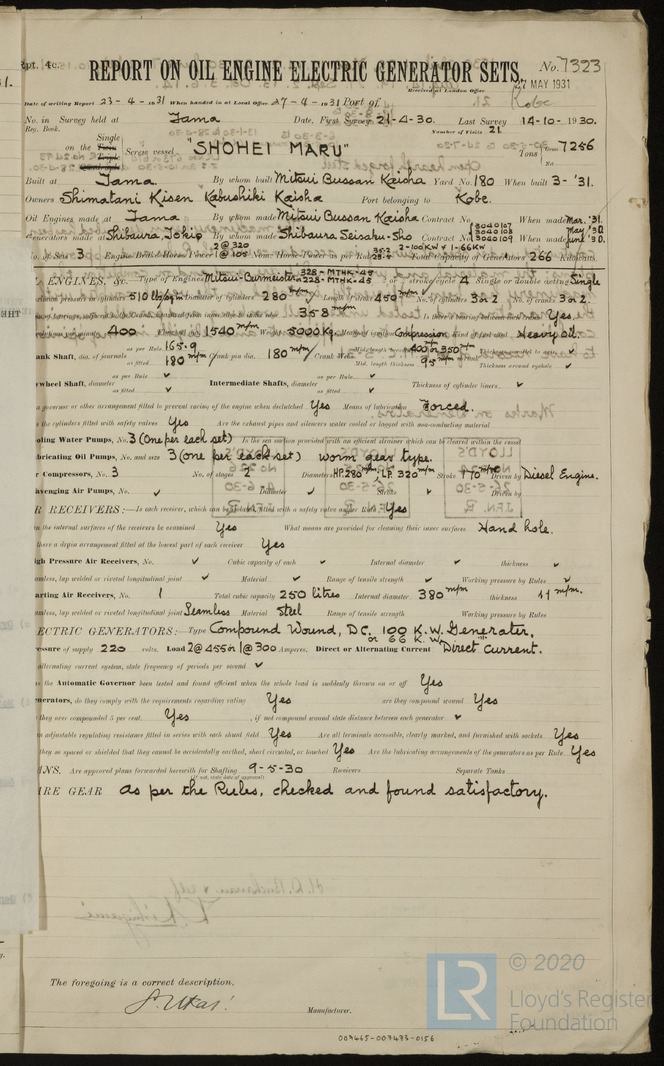 Rpt. 4c.
REPORT ON OIL ENGINE ELECTRIC GENERATOR SETS. No. 7323
Received at London Office 27 MAY 1931
Date of writing Report 23-4-1931 When handed in at Local Office 27-4-1931 Port of Kobe
No. in Survey held at Tama Date, First Survey 21-4-30. Last Survey 14-10-1930.
Reg. Book. Number of Visits 21
on the Single Screw vessel "SHOHEI MARU" Tons Gross 7256 Net
Built at Tama By whom built Mitsui Bussan Kaisha Yard No. 180 When built 3-'31.
Owners Shimatani Kisen Kabushiki Kaisha Port belonging to Kobe.
Oil Engines made at Tama By whom made Mitsui Bussan Kaisha Contract No. When made Mar. '31.
Generators made at Shibaura, Tokio By whom made Shibaura Seisaku-Sho Contract No. 3040107 3040108 3040109 When made May '30 June '30.
No. of Sets 3 Engine Brake Horse Power 2 @ 320 1 @ 105 Nom. Horse Power as per Rule Total Capacity of Generators 2-100KW & 1-66KW 266 Kilowatts.
ENGINES, &c. Type of Engines Mitsui-Burmeister 328-MTHK-45 228-MTHK-45 2 or 4 stroke cycle 4 Single or double acting Single
pressure in cylinders 510 lbs/sqin Diameter of cylinders 280 m/m Length of stroke 450 m/m No. of cylinders 3 or 2 No. of cranks 3 or 2.
358 m/m Is there a bearing between each crank Yes
400 Flywheel 1540 m/m Weight 5000 Kg. Means of ignition Compression Kind of fuel used Heavy Oil.
Crank Shaft, dia. of journals as per Rule 165.9 as fitted 180 m/m Crank pin dia. 180 m/m Crank Webs Mid. length breadth 400 or 350 m/m Mid. length thickness 95 m/m Thickness around eyehole ✓
Flywheel Shaft, diameter as per Rule ✓ as fitted ✓ Intermediate Shafts, diameter as per Rule ✓ as fitted ✓ Thickness of cylinder liners ✓
a governor or other arrangement fitted to prevent racing of the engine when declutched Yes Means of lubrication Forced.
the cylinders fitted with safety valves Yes Are the exhaust pipes and silencers water cooled or lagged with non-conducting material
Cooling Water Pumps, No. 3 (One per each set) Is the sea suction provided with an efficient strainer which can be cleared within the vessel
Lubricating Oil Pumps, No. and size 3 (one per each set) worm gear type.
Air Compressors, No. 3 No. of stages 2 Diameters HP. 280 m/m LP. 320 m/m Stroke 170 m/m Driven by Diesel Engine.
Scavenging Air Pumps, No. ✓ Diameter ✓ Stroke ✓ Driven by
AIR RECEIVERS:—Is each receiver, which can be isolated, fitted with a safety valve as per Rule Yes
the internal surfaces of the receivers be examined Yes What means are provided for cleaning their inner surfaces Hand hole.
there a drain arrangement fitted at the lowest part of each receiver Yes
High Pressure Air Receivers, No. ✓ Cubic capacity of each ✓ Internal diameter ✓ thickness ✓
Seamless, lap welded or riveted longitudinal joint ✓ Material ✓ Range of tensile strength ✓ Working pressure by Rules ✓
Starting Air Receivers, No. 1 Total cubic capacity 250 litres Internal diameter 380 m/m thickness 11 m/m.
Seamless, lap welded or riveted longitudinal joint Seamless Material Steel Range of tensile strength Working pressure by Rules
ELECTRIC GENERATORS:—Type Compound Wound, D.C. 100 K.W. or 66 K.W. Generater.
Pressure of supply 220 volts. Load 2 @ 455 or 1 @ 300 Amperes. Direct or Alternating Current Direct Current.
alternating current system, state frequency of periods per second ✓
the Automatic Governor been tested and found efficient when the whole load is suddenly thrown on or off Yes
Generators, do they comply with the requirements regarding rating Yes are they compound wound Yes
they over compounded 5 per cent. Yes , if not compound wound state distance between each generator ✓
an adjustable regulating resistance fitted in series with each shunt field Yes Are all terminals accessible, clearly marked, and furnished with sockets Yes
they so spaced or shielded that they cannot be accidentally earthed, short circuited, or touched Yes Are the lubricating arrangements of the generators as per Rule Yes
PLANS. Are approved plans forwarded herewith for Shafting 9-5-30 Receivers Separate Tanks
(If not, state date of approval)
SPARE GEAR as per the Rules, checked and found satisfactory.
The foregoing is a correct description,
Manufacturer.
003465-003493-0156
© 2020
LR
Lloyd's Register
Foundation